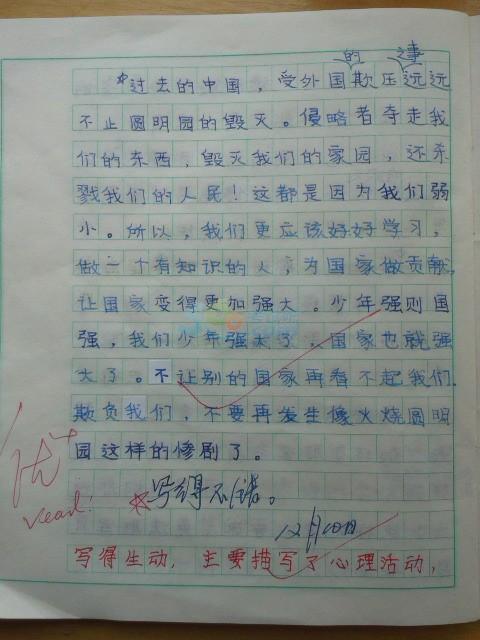 的 之事
过去的中国，受外国欺压远远
不止圆明园的毁灭。侵略者夺走我
们的东西，毁灭我们的家园，还杀
戮我们的人民！这都是因为我们弱
小。所以，我们更应该好好学习，
做一个有知识的人，为国家做贡献，
让国家变得更加强大。少年强则国
强，我们少年强大了，国家也就强
大了。不让别的国家再看不起我们，
欺负我们，不要再发生像火烧圆明
园这样的惨剧了。
优+
写得不错。
read!
12月10日
写得生动，主要描写了心理活动，